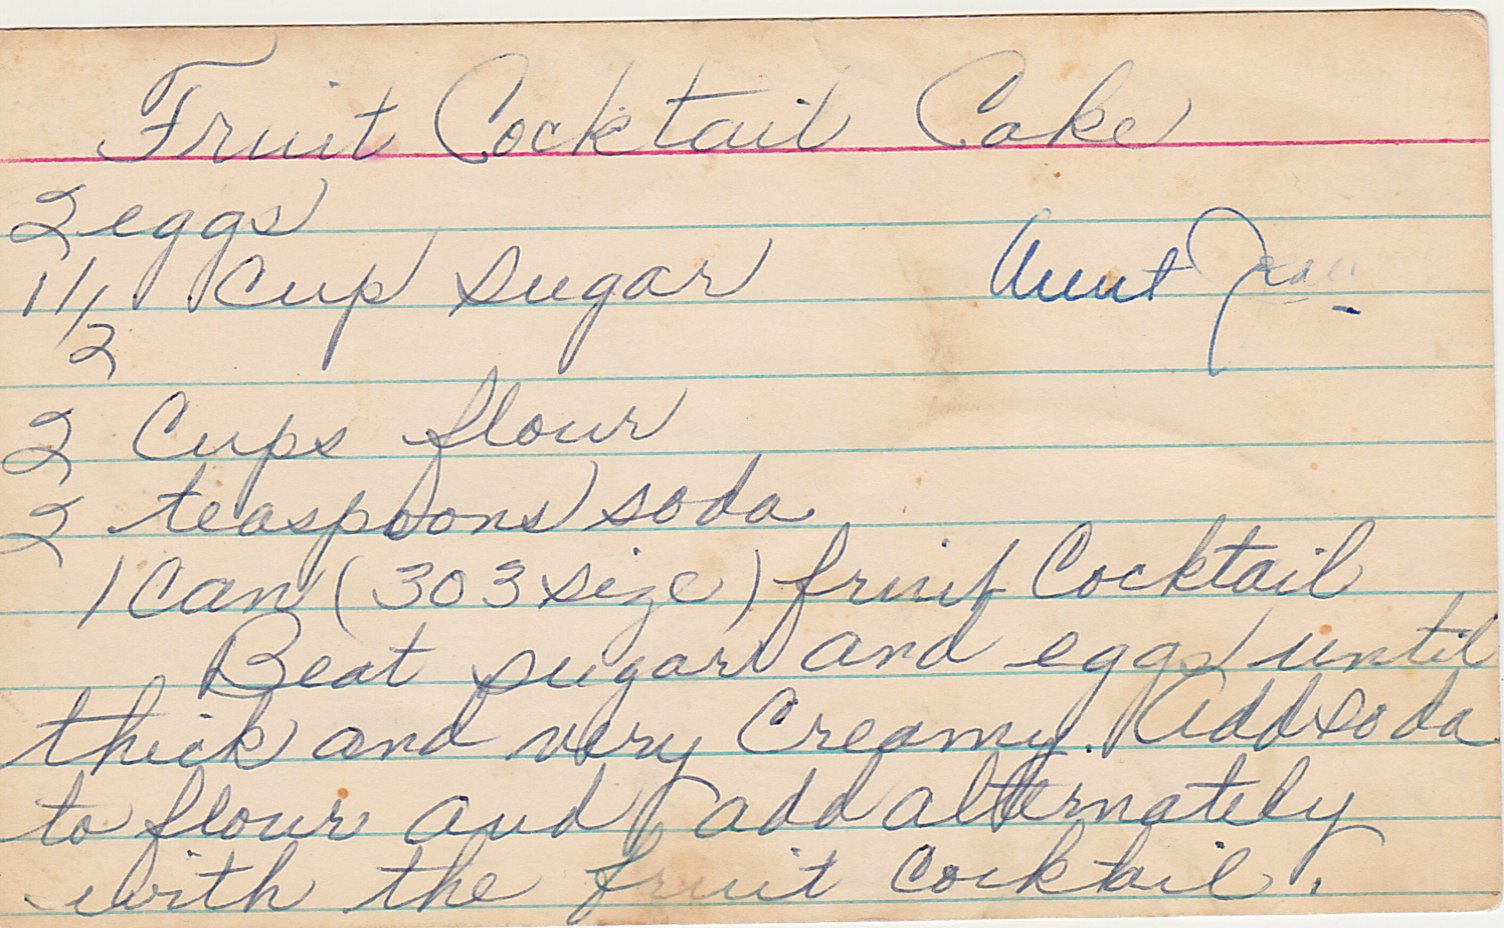 Fruit Cocktail Cake
2 eggs
1 1/2 Cup sugar
Aunt
2 Cups flour
2 teaspoons soda
1 Can (303 size) fruit Cocktail
Beat sugar and eggs until
thick and very Creamy. Add soda
to flour and add alternately
with the fruit cocktail.